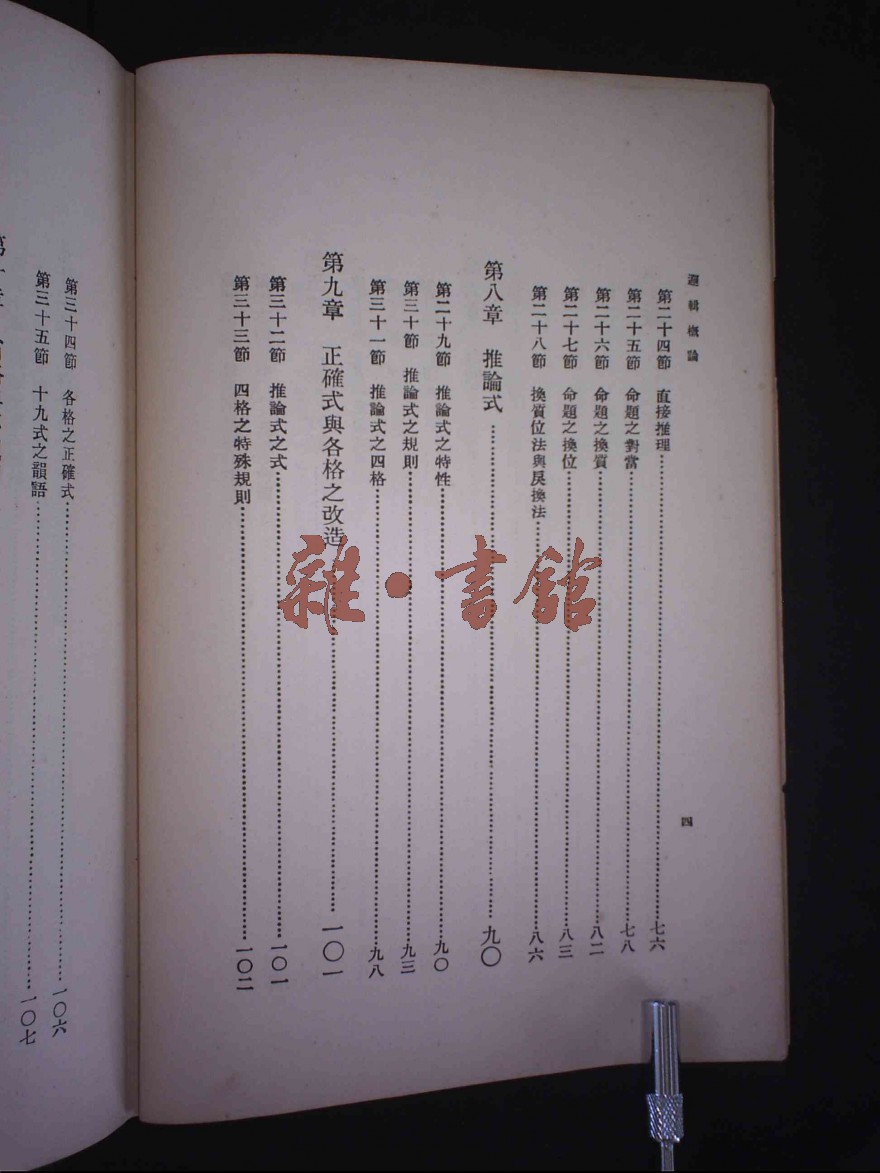 邏輯概論
四
第二十四節　直接推理……七六
第二十五節　命題之對當……七八
第二十六節　命題之換質……八二
第二十七節　命題之換位……八三
第二十八節　換質位法與戾換法……八六
第八章　推論式……九〇
第二十九節　推論式之特性……九〇
第三十節　推論式之規則……九三
第三十一節　推論式之四格……九八
第九章　正確式與各格之改造……一〇一
第三十二節　推論式之式……一〇一
第三十三節　四格之特殊規則……一〇二
第三十四節　各格之正確式……一〇六
第三十五節　十九式之韻語……一〇七
雜·書館